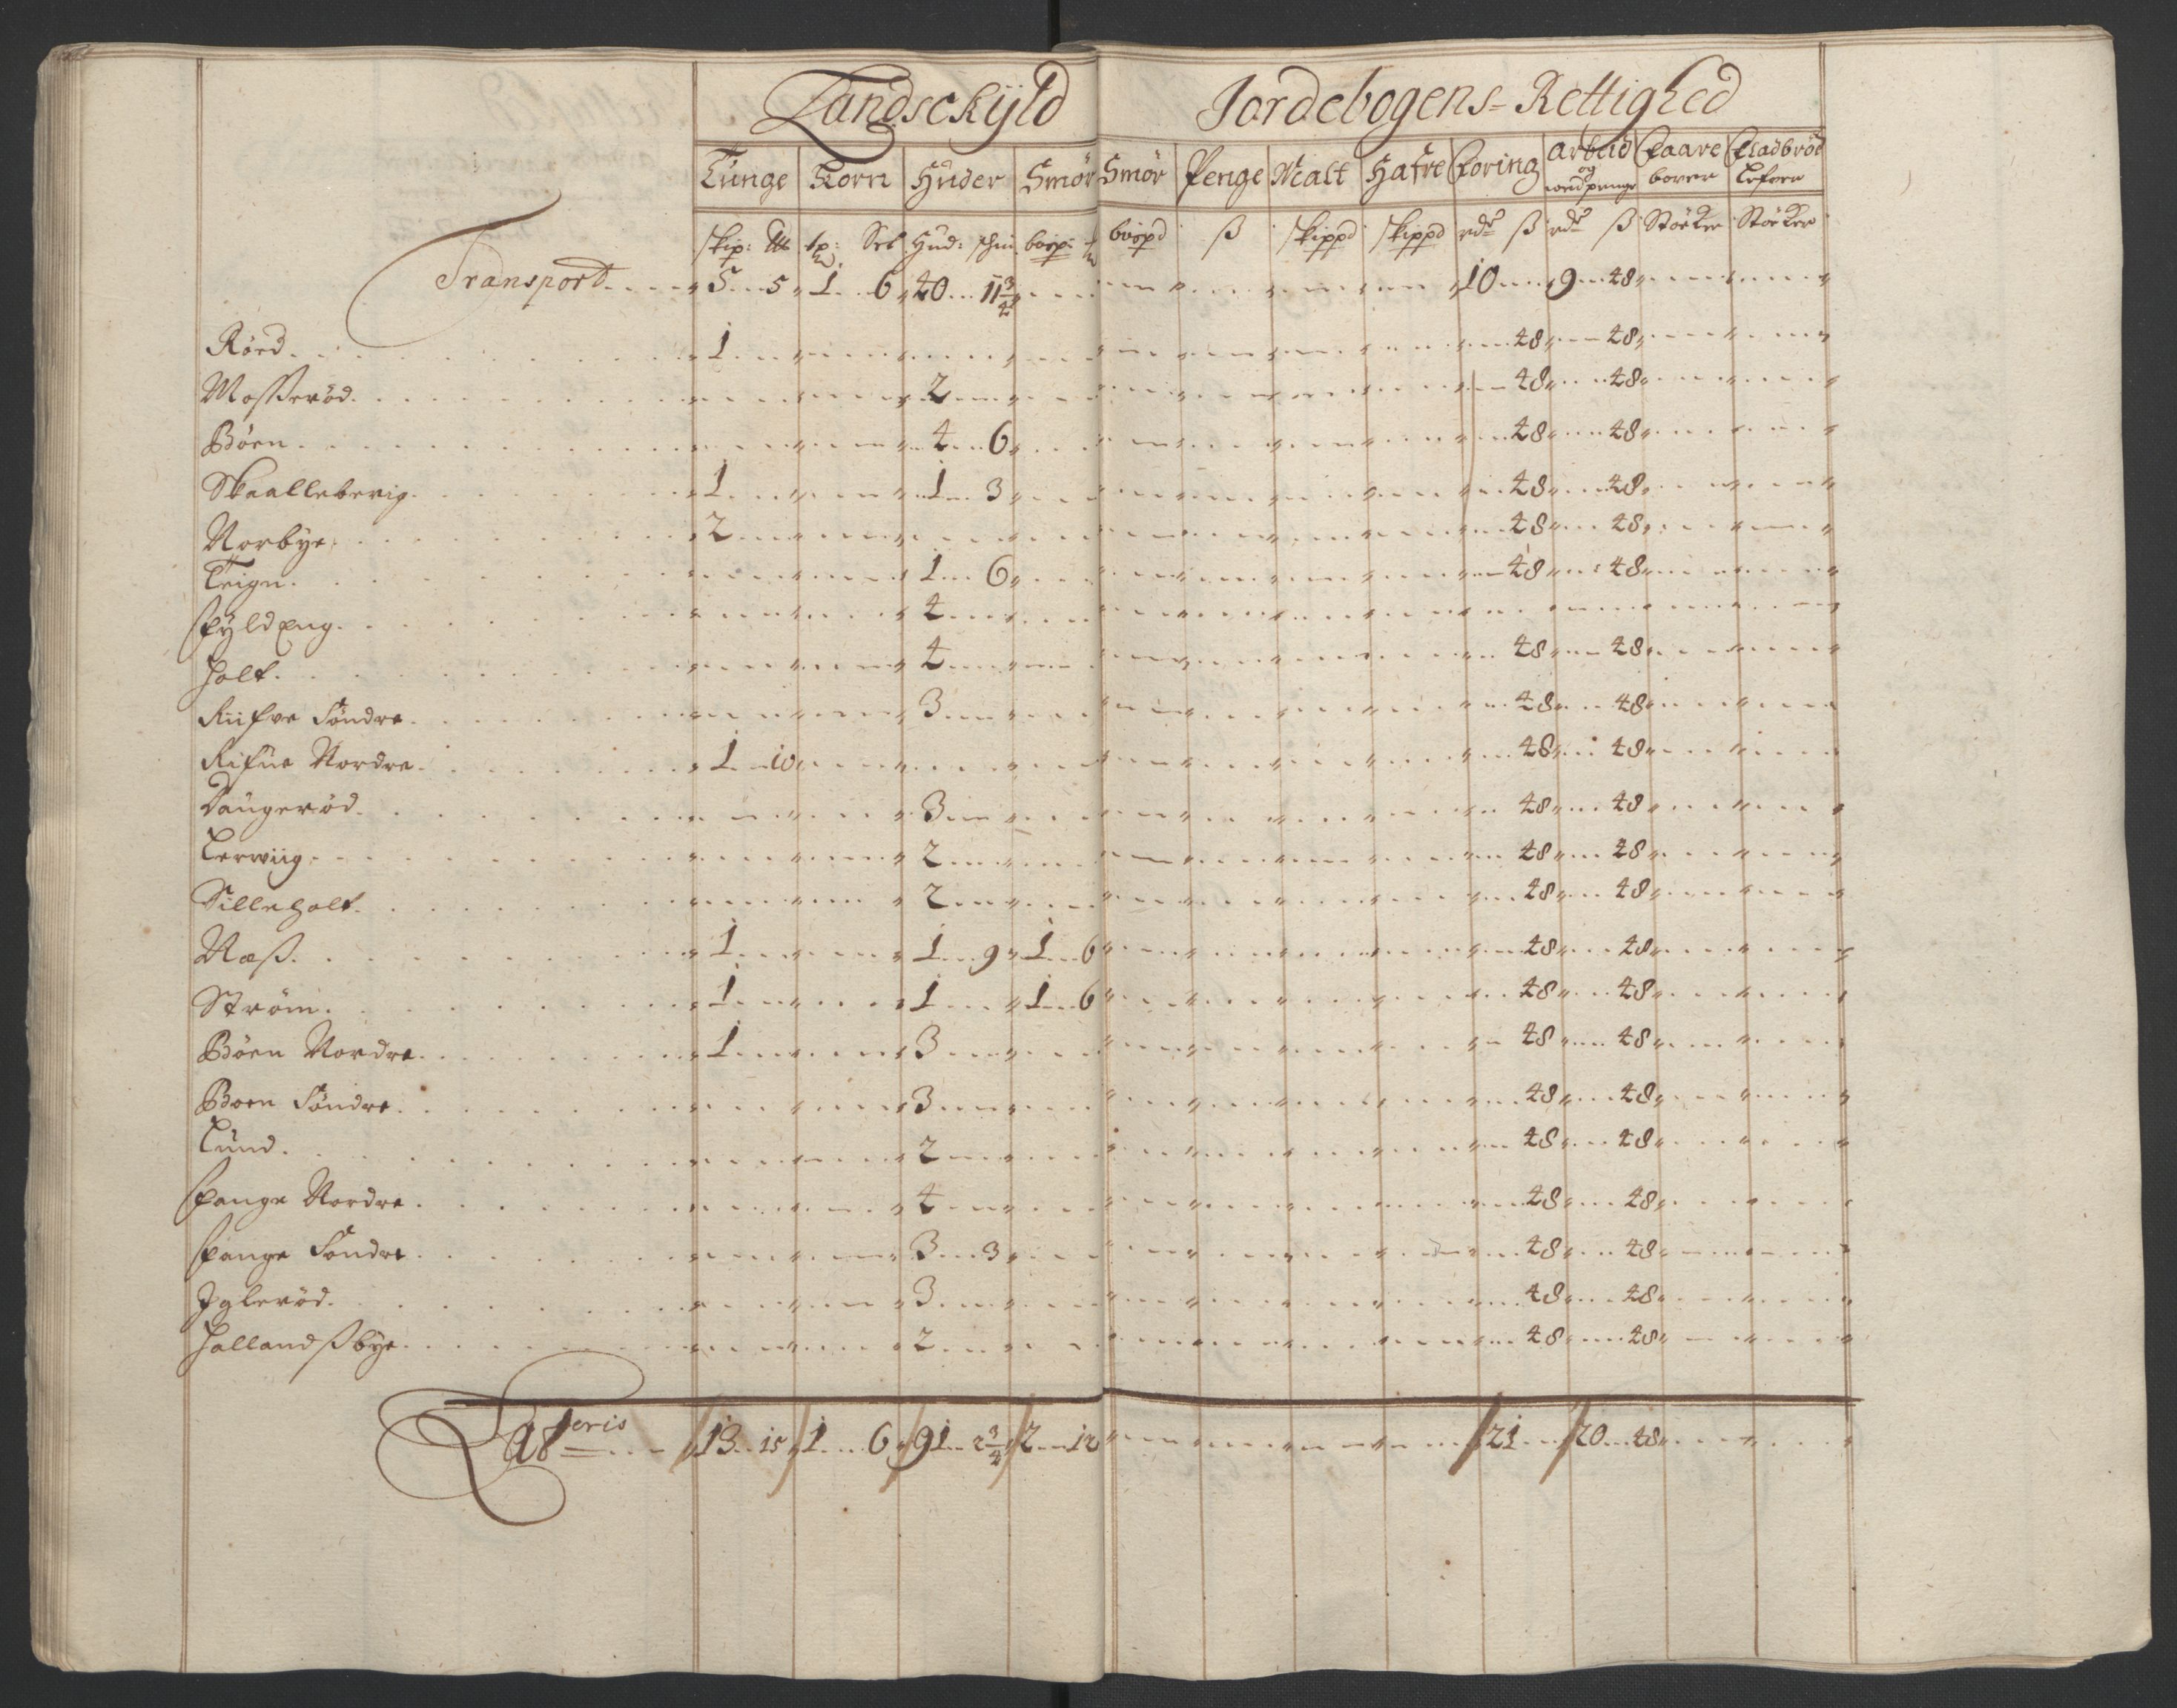 Landschÿld Jordebogens-Rettighed
Tunge Korn Huder Smør Smør Penge Malt Hafre Foring Arbeid og wedpenge Faare bower Fladbrød Lefwer
skip: ltt tp: Set Hud: schin bvpp: bvopd ß skippd skippd rdr ß rdr ß Støcker Støcker
Transport 5 5 1 6 40 11 3/4 10 9 48
Röed 1 48 48
Mosserød 2 48 48
Böen 4 6 48 48
Skaallebevig 1 1 3 48 48
Norbye 2 48 48
Teign 1 6 48 48
Fyld Eng 4
Holt 4 48 48
Riifve Söndre 3 48 48
Rifue Nordre 1 10 48 48
Daugerød 3 48 48
Lerwiig 2 48 48
Silleholt 2 48 48
Næß 1 1 9 1 6 48 48
Ström 1 1 1 6 48 48
Böen Nordre 1 3 48 48
Boen Söndre 3 48 48
Lund 2 48 48
Fange Nordre 4 48 48
Fange Söndre 3 3 48 48
Iglerød 3 48 48
Hallandßbye 2 48 48
Lateris 13 15 1 6 91 2 3/4 2 12 21 20 48